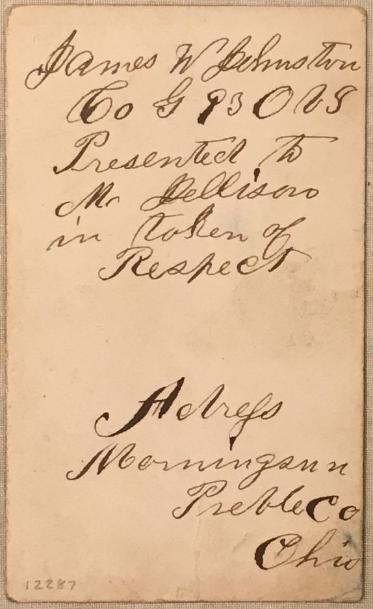 James W Johnston
Co G 93 O V S
Presented to
Mr Jellison
in token of
Respect
Adress
Morningsun
Preble Co
Ohio
12287